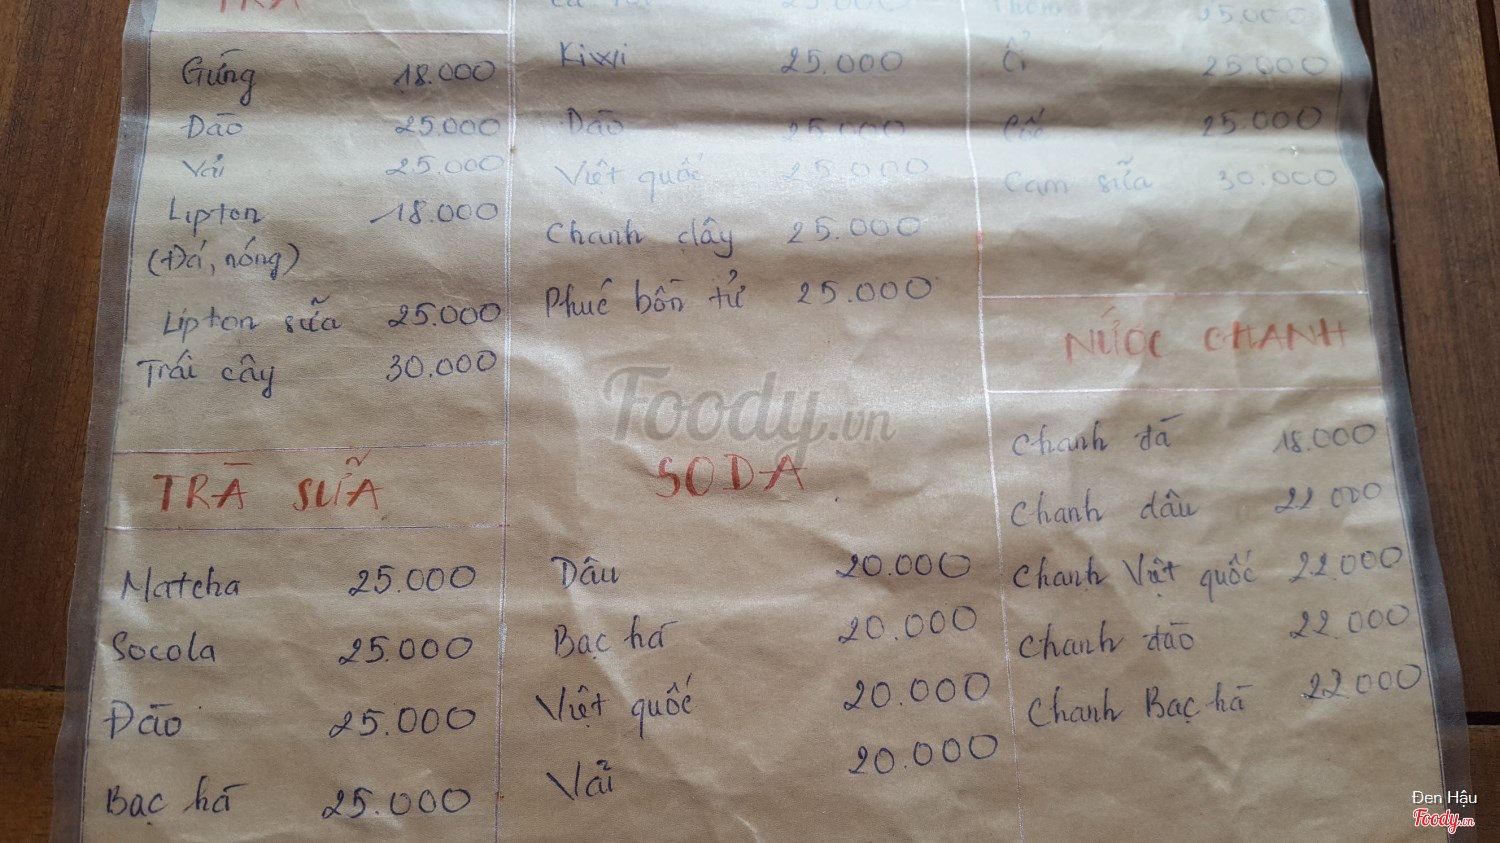 TRÀ
Gừng 18.000
Đào 25.000
Vải 25.000
Lipton 18.000
(Đá, nóng)
Lipton sữa 25.000
Trái cây 30.000
TRÀ SỮA
Matcha 25.000
Socola 25.000
Đào 25.000
Bạc hà 25.000
25.000
Kiwi 25.000
Đào 25.000
Việt quốc 25.000
Chanh dây 25.000
Phúc bồn tử 25.000
SODA
Dâu 20.000
Bạc hà 20.000
Việt quốc 20.000
Vải 20.000
Thơm 25.000
Ổi 25.000
Cóc 25.000
Cam sữa 30.000
NƯỚC CHANH
Chanh đá 18.000
Chanh dâu 22.000
Chanh Việt quốc 22.000
Chanh đào 22.000
Chanh Bạc hà 22.000
Foody.vn
Đen Hậu
Foody.vn